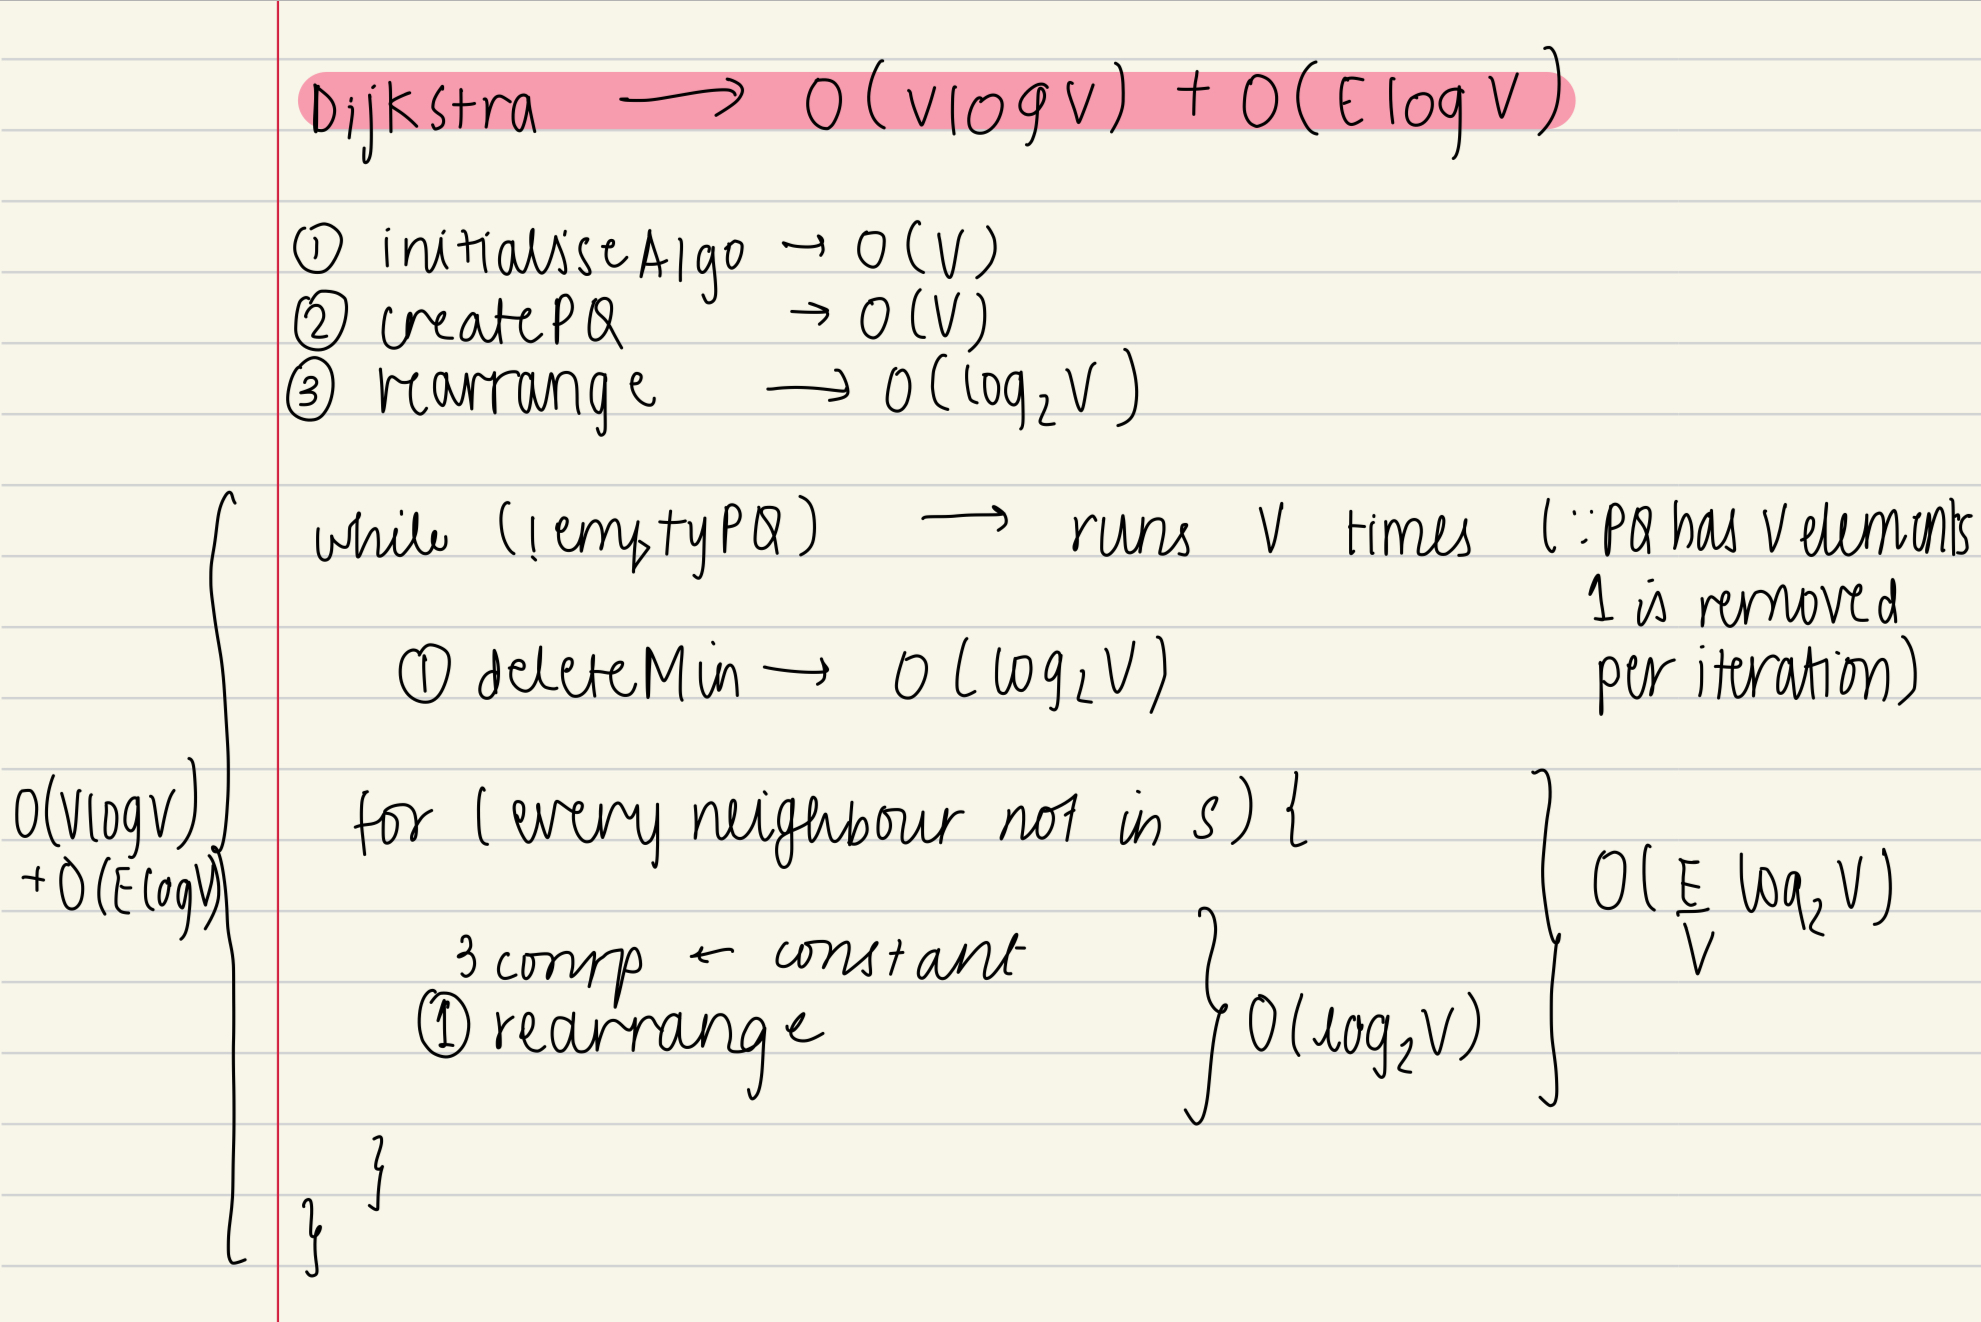 Dijkstra → O(VlogV) + O(ElogV)
① initialiseAlgo → O(V)
② createPQ → O(V)
③ rearrange → O(log₂V)
while (!emptyPQ) → runs V times (∵PQ has V elements
1 is removed
① deleteMin → O(log₂V) per iteration)
O(VlogV)
+O(ElogV)
for (every neighbour not in S) {
O(E/V log₂V)
3 comp ← constant
① rearrange } O(log₂V)
}
}